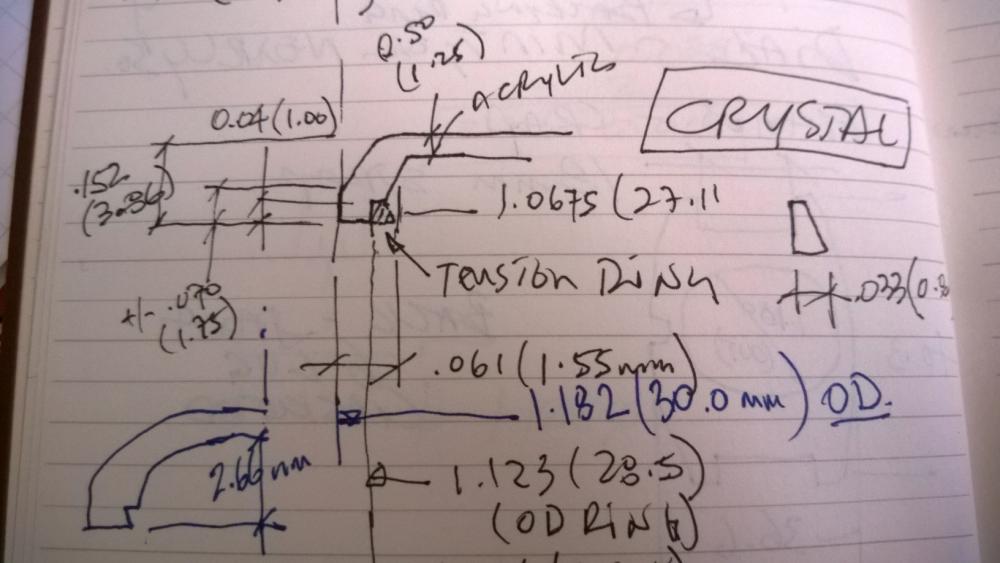 0.50
(1.25)
ACRYLIC
CRYSTAL
0.04(1.00)
.152
(3.86)
1.0675 (27.11
TENSION RING
.033(0.8
+/- .070
(1.75)
.061 (1.55mm)
1.182 (30.0 mm) OD.
2.66 mm
1.123 (28.5)
(OD RING)